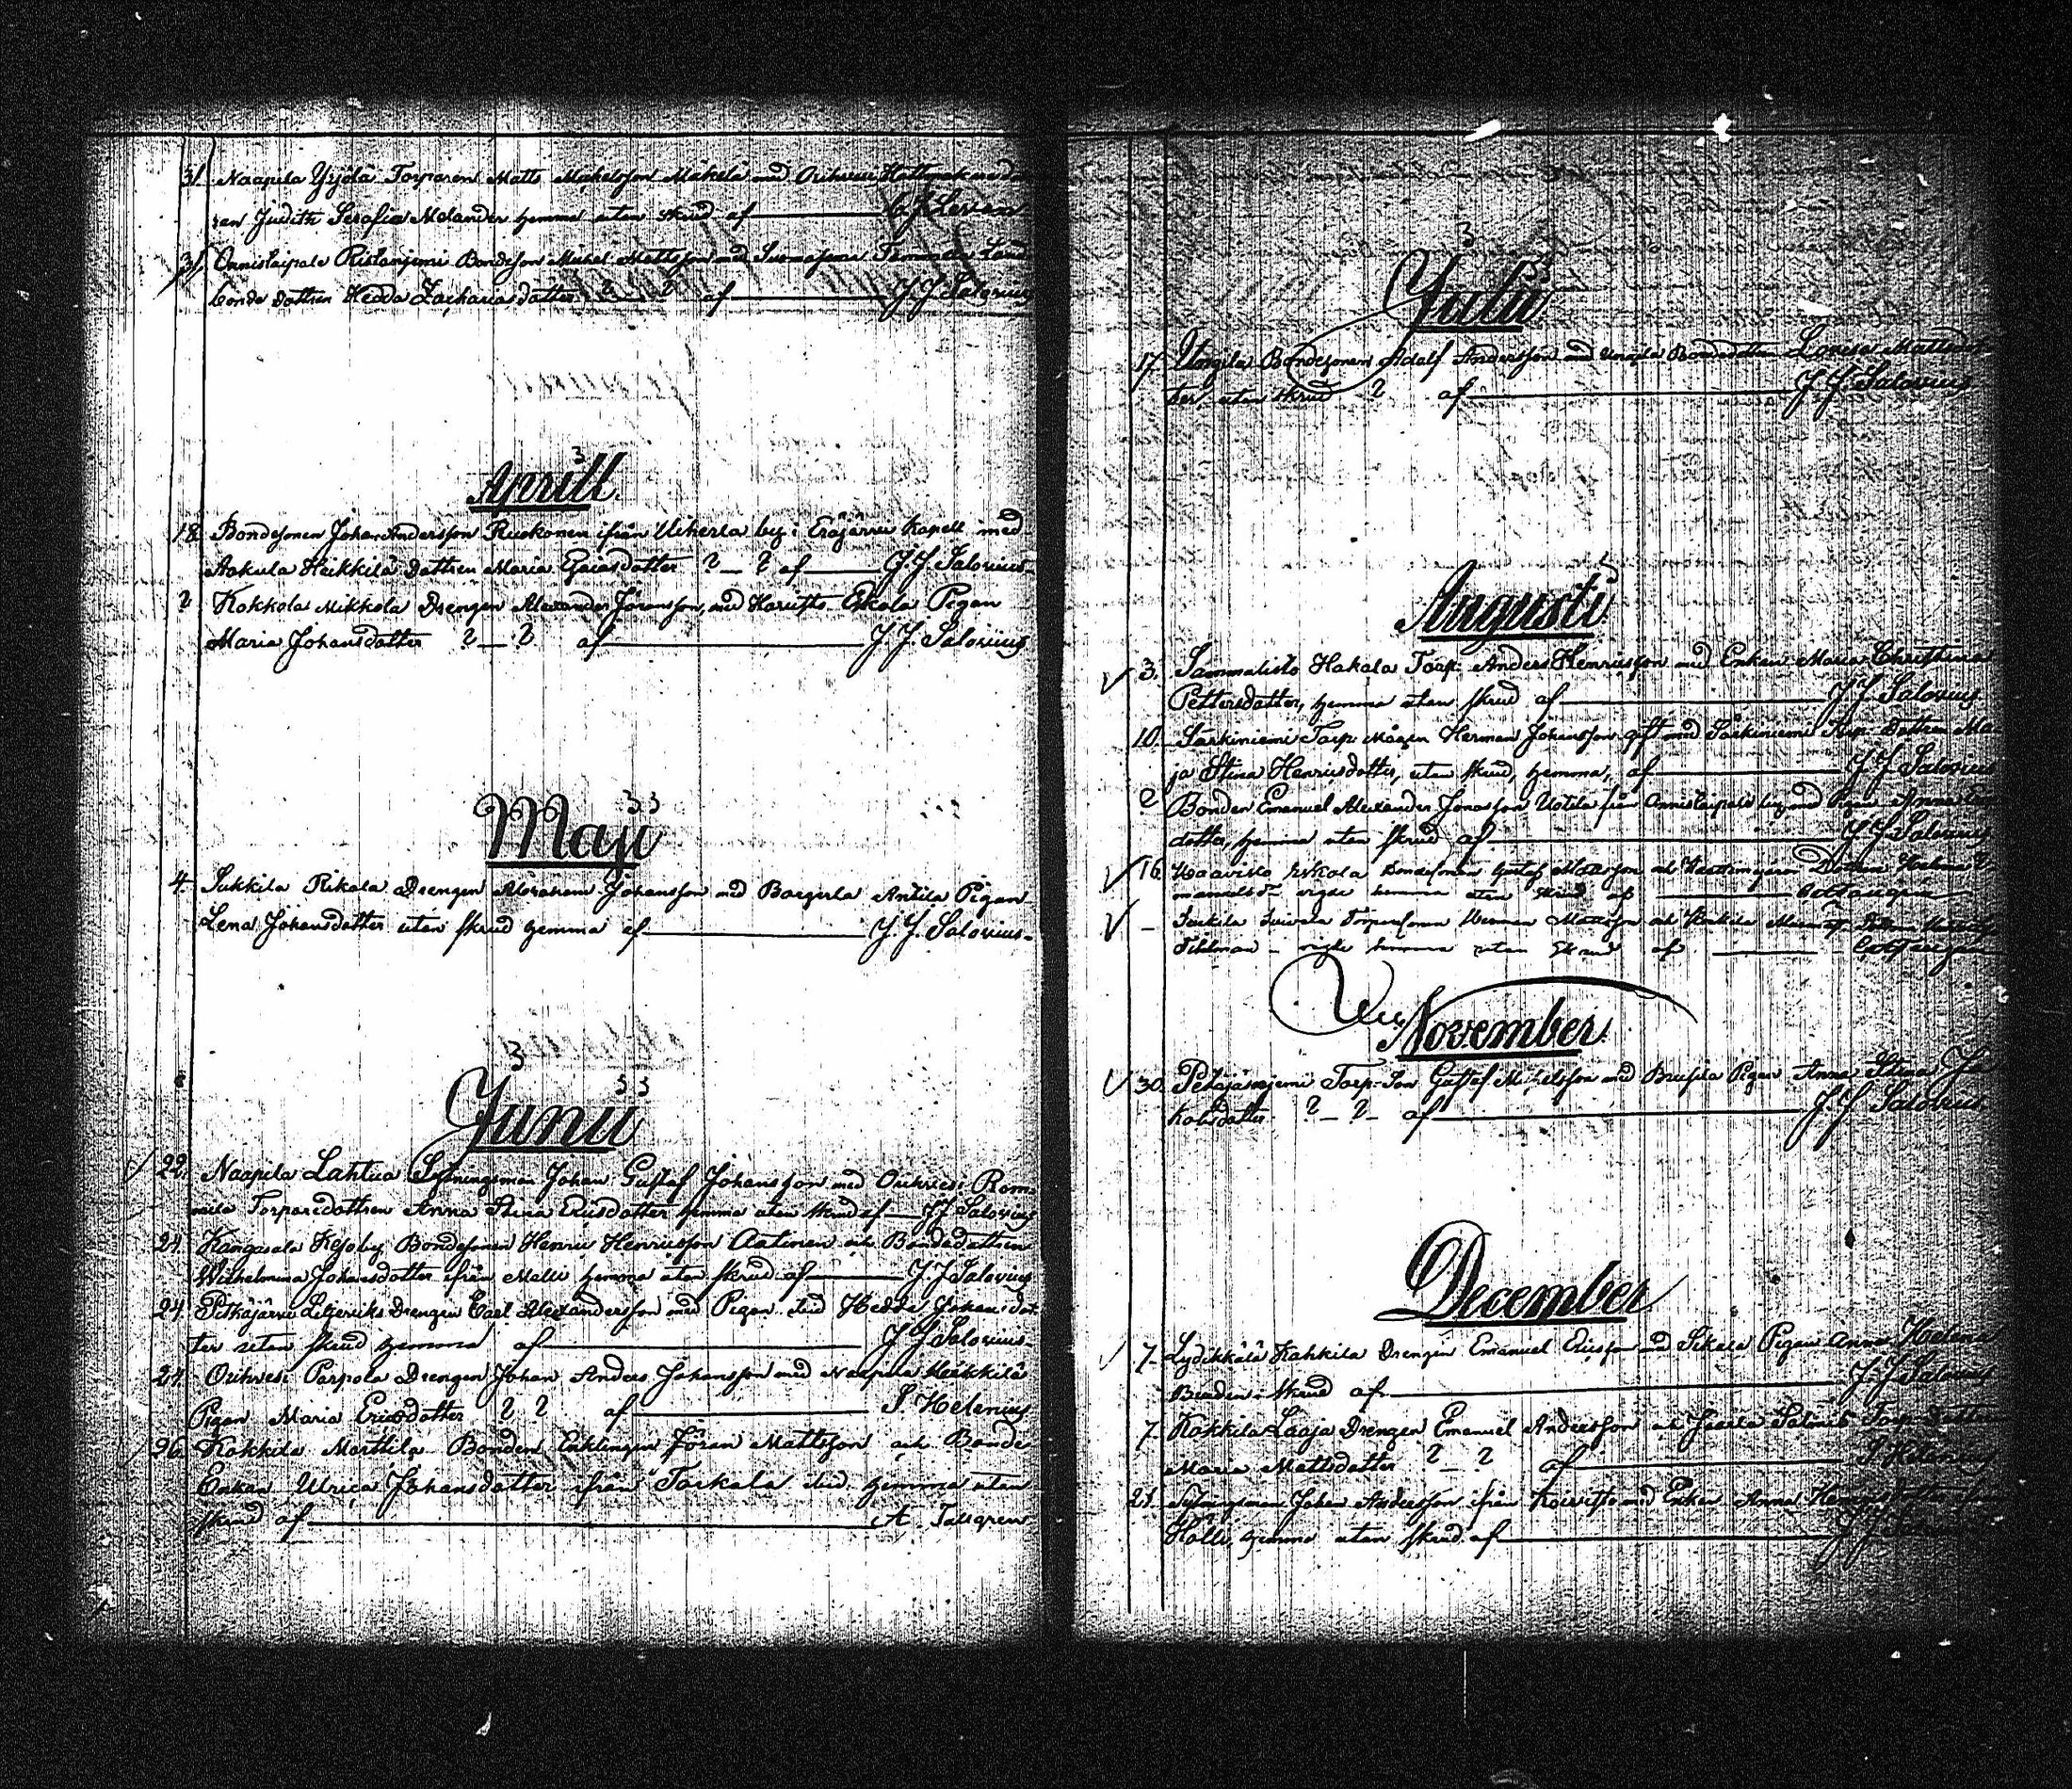 31. Naapila Yijälä Torparen Matts Michelsson Mäkelä med Orihvesi Hattmakaredo
ren Judith Serafia Melander hemma utan skrud af
31. Onnistaipale Ristaniemi Bondeson Michel Mattsson med
bonde dottren Hedda Zachariasdotter ? ? af J. J. Salovius
3
Aprill
18. Bondesonen Johan Andersson Ruokonen ifrån Uiherla by i Eräjärvi Kapell med
Aakula Heikkilä Dottren Maria Esaiasdotter ? _ ? af J. J. Salovius
? Kokkola Mikkola Drengen Alexander Jöransson, med Havisto Eskola Pigan
Maria Johansdotter ? _ ? af J. J. Salovius
33
Maji
4. Sukkila Rikala Drengen Abraham Johansson med Anttila Pigan
Lena Johansdotter utan skrud hemma af J. J. Salovius
3
33
Junii
22. Naapila Lahtua Sytningsman Johan Gustaf Johansson med Orihvesi Rom
mila Torparedottren Anna Stina Ericsdotter hemma utan skrud af J J Salovius
24. Kangasala Bondesonen Henric Henricsson Aatinen och Bondedottren
Wilhelmina Johansdotter ifrån Malli hemma utan skrud af J J Salovius
24. Pitkäjärvi Drengen Carl Alexandersson med Pigan Hedda Johansdot
ter utan skrud hemma af J J Salovius
24. Orihvesi Parpola Drengen Johan Anders Johansson med Naapila Heikkilä
Pigan Maria Ericsdotter ? ? af S Helenius
26. Kokkila Marttila Bonden Enklingen Jöran Mattsson och Bonde
Enkan Ulrica Johansdotter ifrån Tarkala hemma utan
skrud af A. Tallgren
3
33
Julii
17. Bondesonen Adolf Andersson med Bondedottren Lovisa Mattsdot
ter utan skrud ? af J. J. Salovius
Augusti
3. Sammalisto Hakala Torp. Anders Henricsson med Enkan Maria Christina
Pettersdotter, hemma utan skrud af J J Salovius
10. Särkiniemi Torp. Mågen Herman Johansson gift med Särkiniemi Torp. Dottren Ma
ja Stina Henricsdotter, utan skrud, hemma, af J J Salovius
? Bonden Emanuel Alexander Jonasson Uotila från Onnistaipale by med Pigan Anna
dotter, hemma utan skrud af J J Salovius
16. Haavisto Eskola Bondesonen Gustaf Mattsson och
vigde hemma utan skrud af
- Torparesonen Herman Mattsson och
Tillman - vigde hemma utan skrud af
November
30. Torp. Son Gustaf Michelsson med Pigan Anna Stina Ja
kobsdotter ? _ ? _ af J. J Salovius
December
7. Lydikkälä Kahkila Drengen Emanuel Ericsson med Pigan Anna Helena
skrud af J. J Salovius
7. Kokkila Laaja Drengen Emanuel Andersson och Torp. Dotter
Maria Mattsdotter ? _ ? af S Helenius
Sytningsman Johan Andersson ifrån Koivisto med Enkan Anna
Hölli, hemma utan skrud af